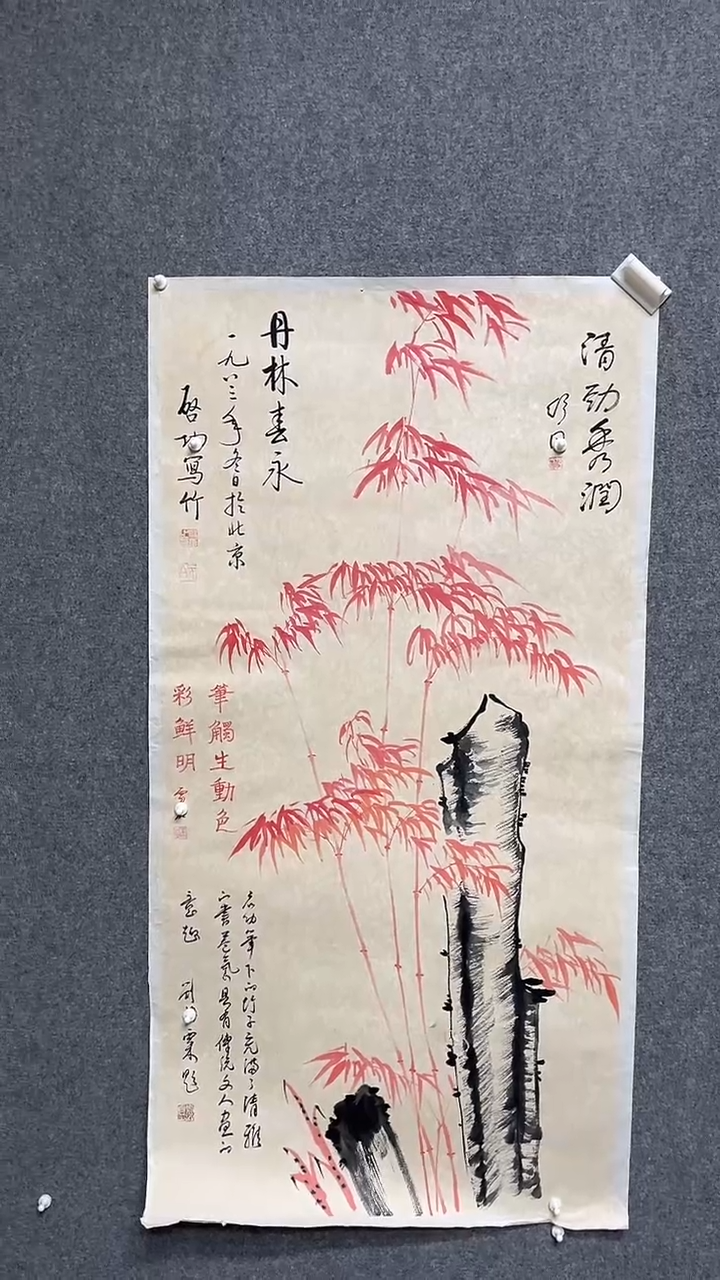 清勁秀潤
丹林春永
一九八三年冬日於北京
啓功寫竹
筆觸生動色
彩鮮明
啓功筆下的竹子充滿了清雅
書卷氣具有傳統文人畫的
意趣
劉 粟題